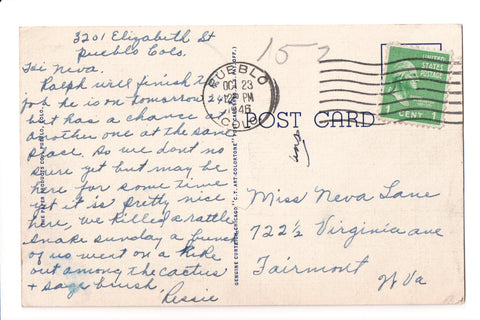 3201 Elizabeth St
Pueblo Colo.
Hi Neva.
Ralph will finish the
job he is on tomorrow
but has a chance at
another one at the same
place. So we dont no
sure yet but may be
here for some time
yet it is pretty nice
here, we killed a rattle
snake sunday a bunch
of us went on a hike
out among the cactus
+ sage brush,
Ressie
152
PUEBLO
OCT 23
PM
46
COLO
UNITED
STATES
POSTAGE
1 CENT 1
POST CARD
GENUINE CURTEICH-CHICAGO "C.T. ART-COLORTONE" POST CARD (REG. U.S. PAT. OFF.)
Miss Neva Lane
722½ Virginia ave
Fairmont
W Va